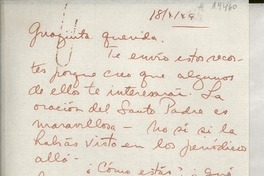 A 14460
18/X/49
Guaguita querida.
Te envío estos recor-
tes porque creo que algunos
de ellos te interesarán. La
oración del Santo Padre es
maravillosa - no sé si la
habías visto en los periódicos
allá -
¿Cómo estás? ¿Qué